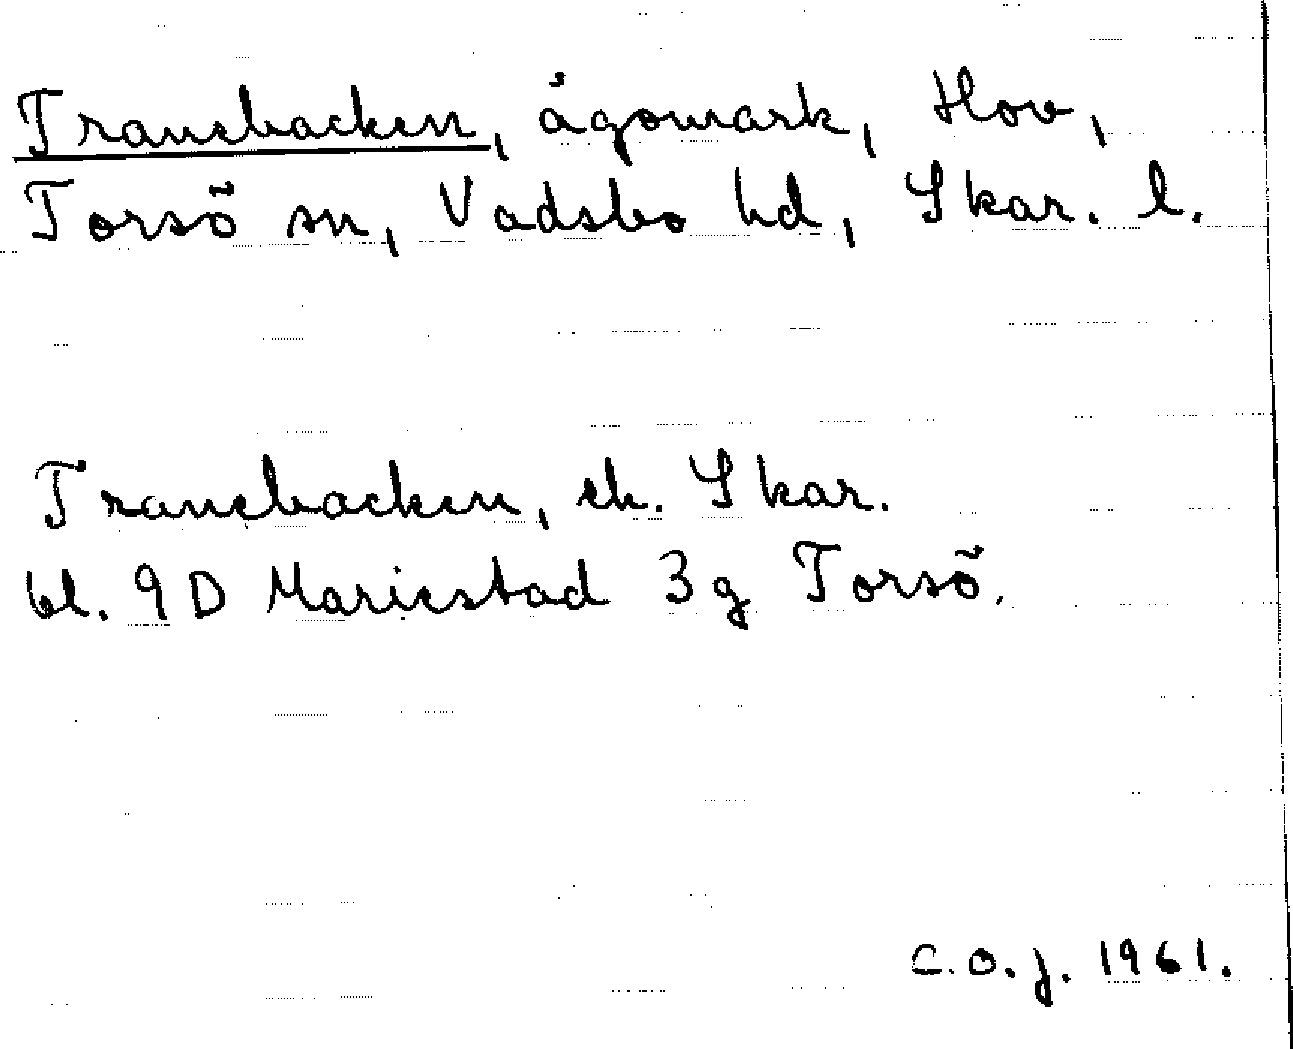 Tranebacken, ägomark, Hov,
Torsö sn, Vadsbo hd, Skar. l.
Tranebacken, ek. Skar.
bl. 9D Mariestad 3g Torsö.
C.O.J. 1961.